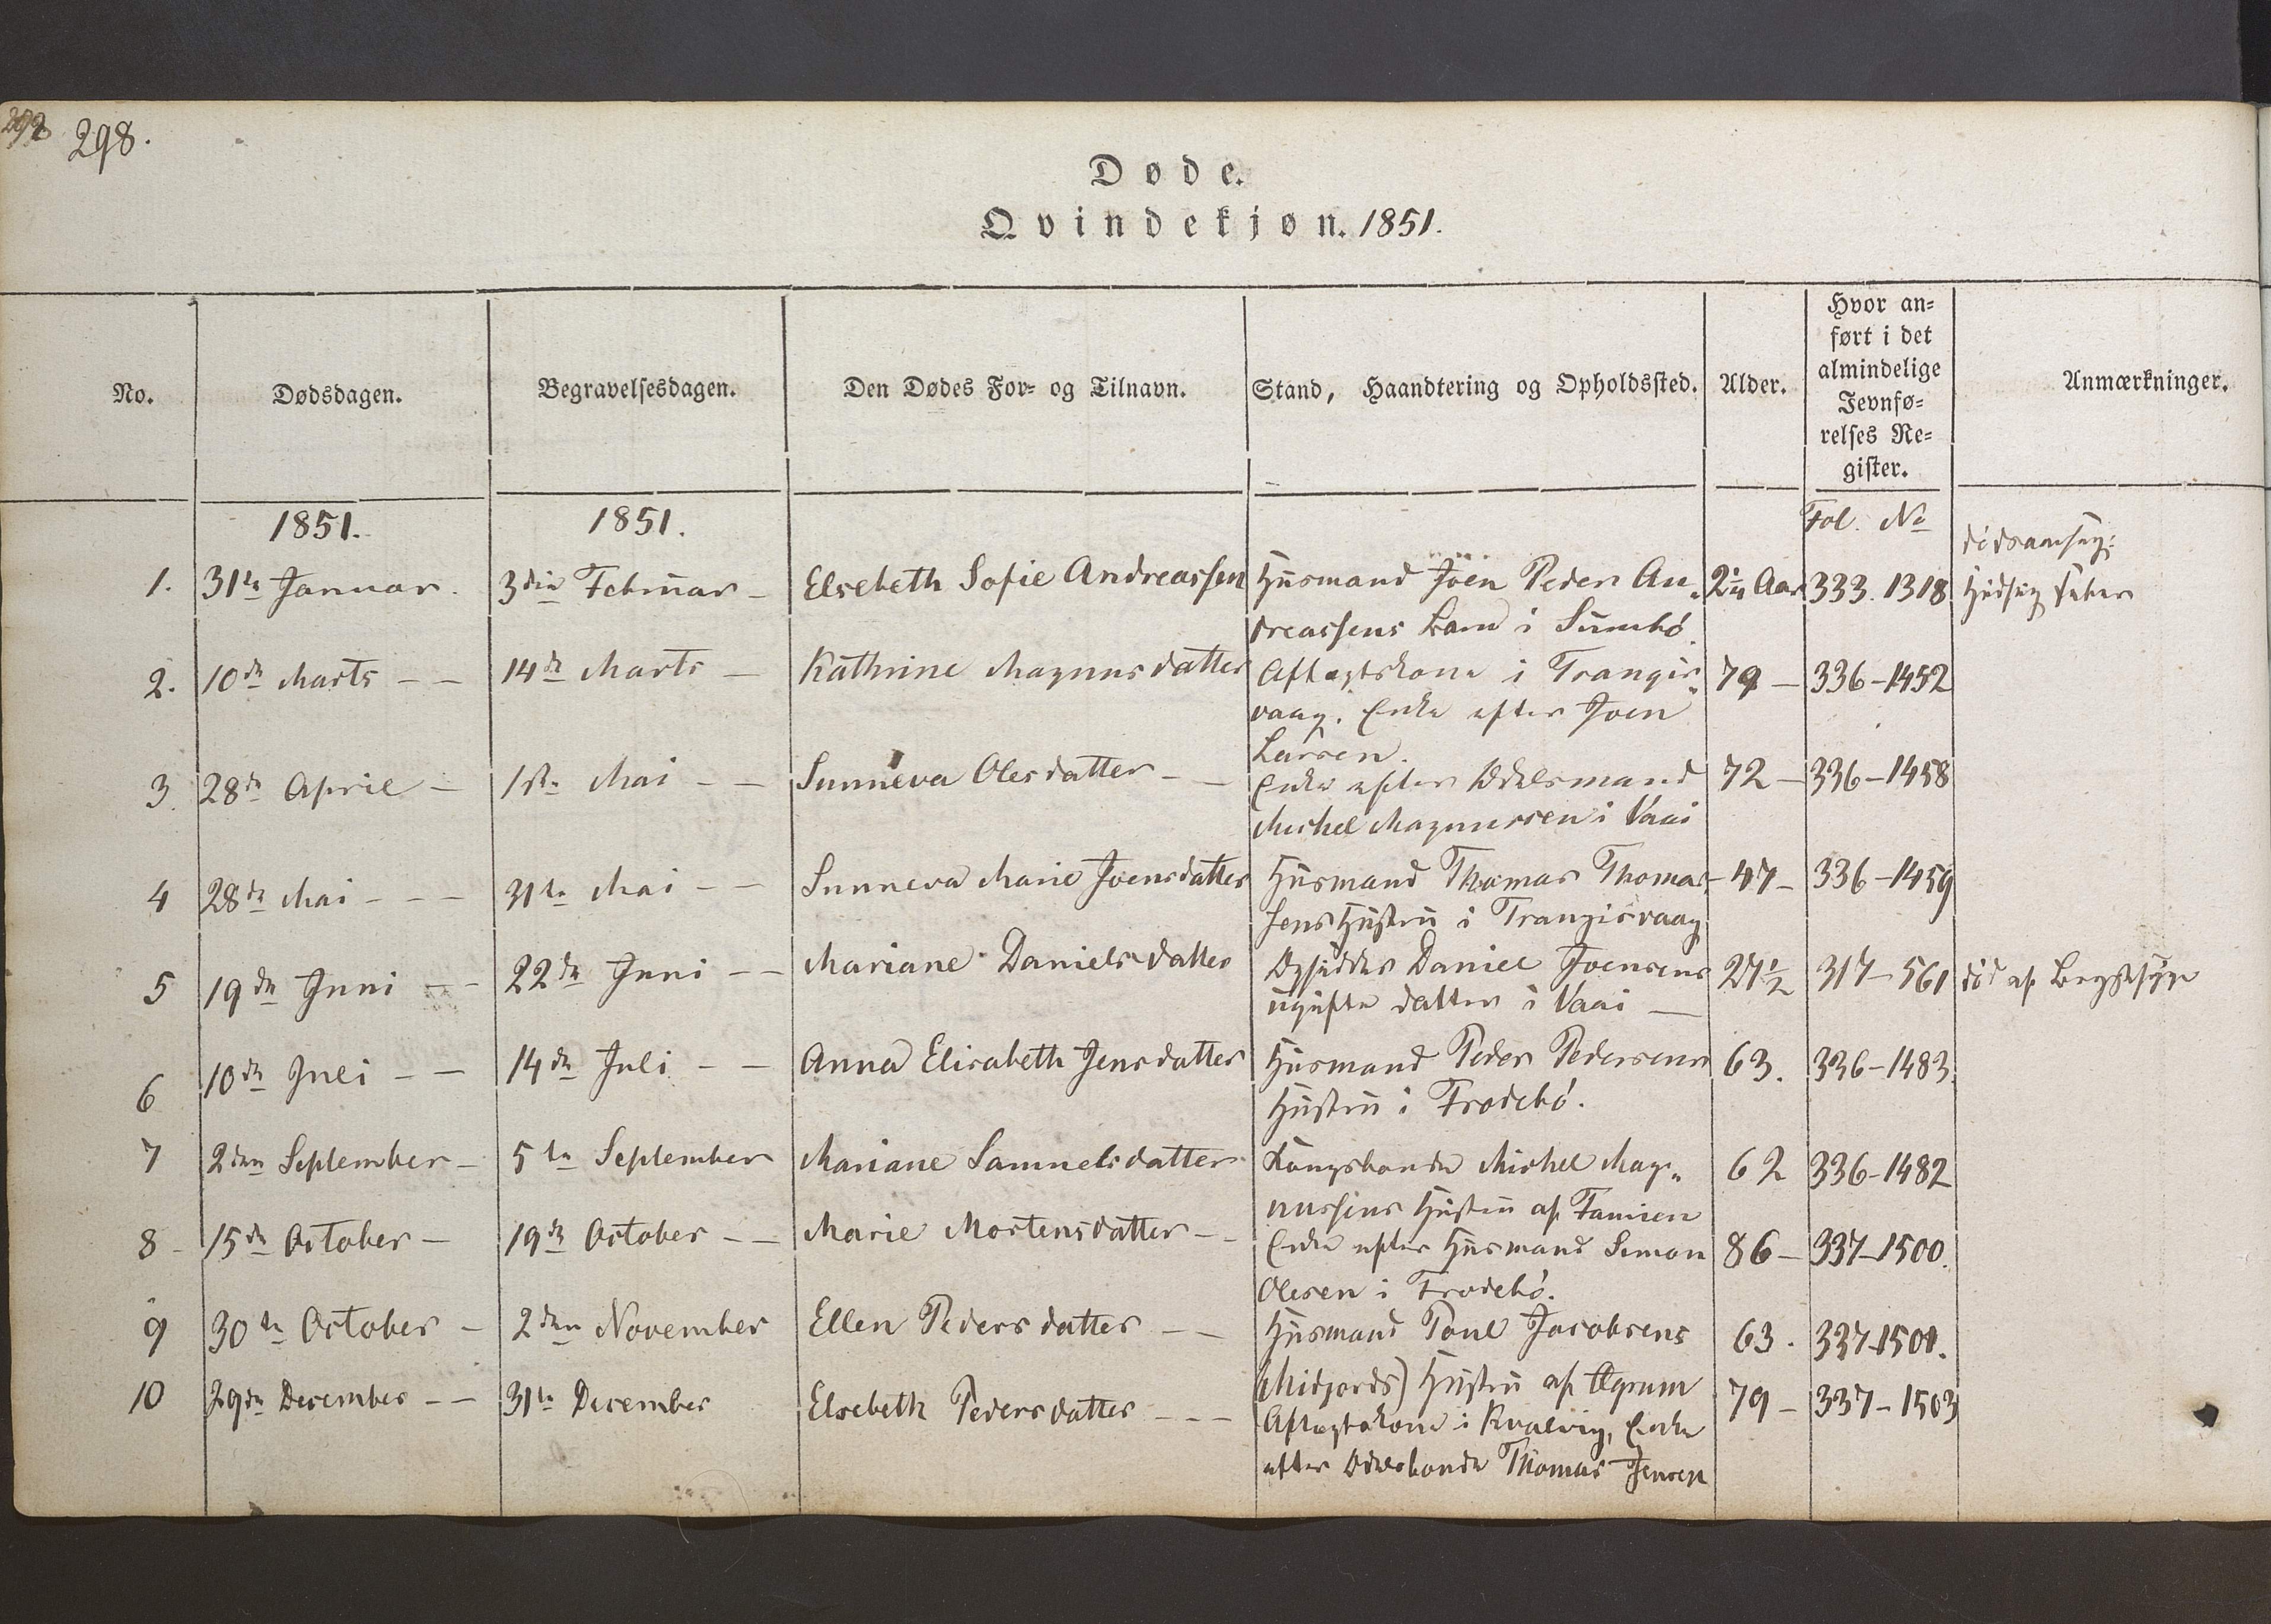 298.
Døde.
Qvindekjøn. 1851.
No. Dødsdagen. Begravelsesdagen. Den Dødes For- og Tilnavn. Stand, Haandtering og Opholdssted. Alder. Hvor an-
ført i det
almindelige
Jevnfø-
relses Re-
gister. Anmærkninger.
1851. 1851. Fol. No
1. 31te Januar. 3die Februar - Elsebeth Sofie Andreassen Huusmand Joen Peder An- Aar 333. 1318
dreassens Barn i Sumbø.
2. 10de Marts - - 14de Marts - Kathrine Magnusdatter Aftægtskone i Trangis- 79 - 336-1452
vaag. Enke efter Joen
Larsen.
3. 28de April - 1ste Mai - - Sunneva Olesdatter - - Enke efter Odelsmand 72 - 336-1458
Michel Magnussen i Vaai
4 28de Mai - - - 31te Mai - - Sunneva Marie Joensdatter Huusmand Thomas Thomas- 47 - 336-1459
sens Hustru i Trangisvaag
5 19de Juni - - 22de Juni - - Mariane Danielsdatter Opsidder Daniel Joensens 27 1/2 317-561 død af Brystsyge
ugifte datter i Vaai -
6 10de Juli - - 14de Juli - - Anna Elisabeth Jensdatter Huusmand Peder Pedersens 63. 336-1483.
Hustru i Frodebø.
7 2den September - 5te September Mariane Samuelsdatter Kongsbonde Michel Mag- 62 336-1482
nussens Hustru af Famien
8 - 15de October - 19de October - - Marie Mortensdatter - - Enke efter Huusmand Simon 86 - 337-1500.
Olesen i Frodebø.
9 30te October - 2den November Ellen Pedersdatter - - Huusmand Poul Jacobsens 63. 337-1501.
(Midjords) Hustru af
10 29de December - - 31te December Elsebeth Pedersdatter - - - Aftægtskone i Kvalvig, Enke 79 - 337-1503
efter Odelsbonde Thomas Jensen